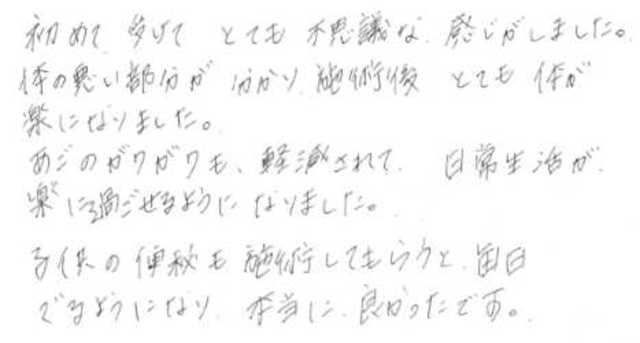 初めて 受けて とても 不思議な 感じがしました。
体の悪い部分が 分かり 施術後 とても 体が
楽になりました。
あごのガクガクも、軽減されて 日常生活が
楽に過ごせるようになりました。
子供の便秘も 施術してもらうと 毎日
でるようになり 本当に 良かったです。